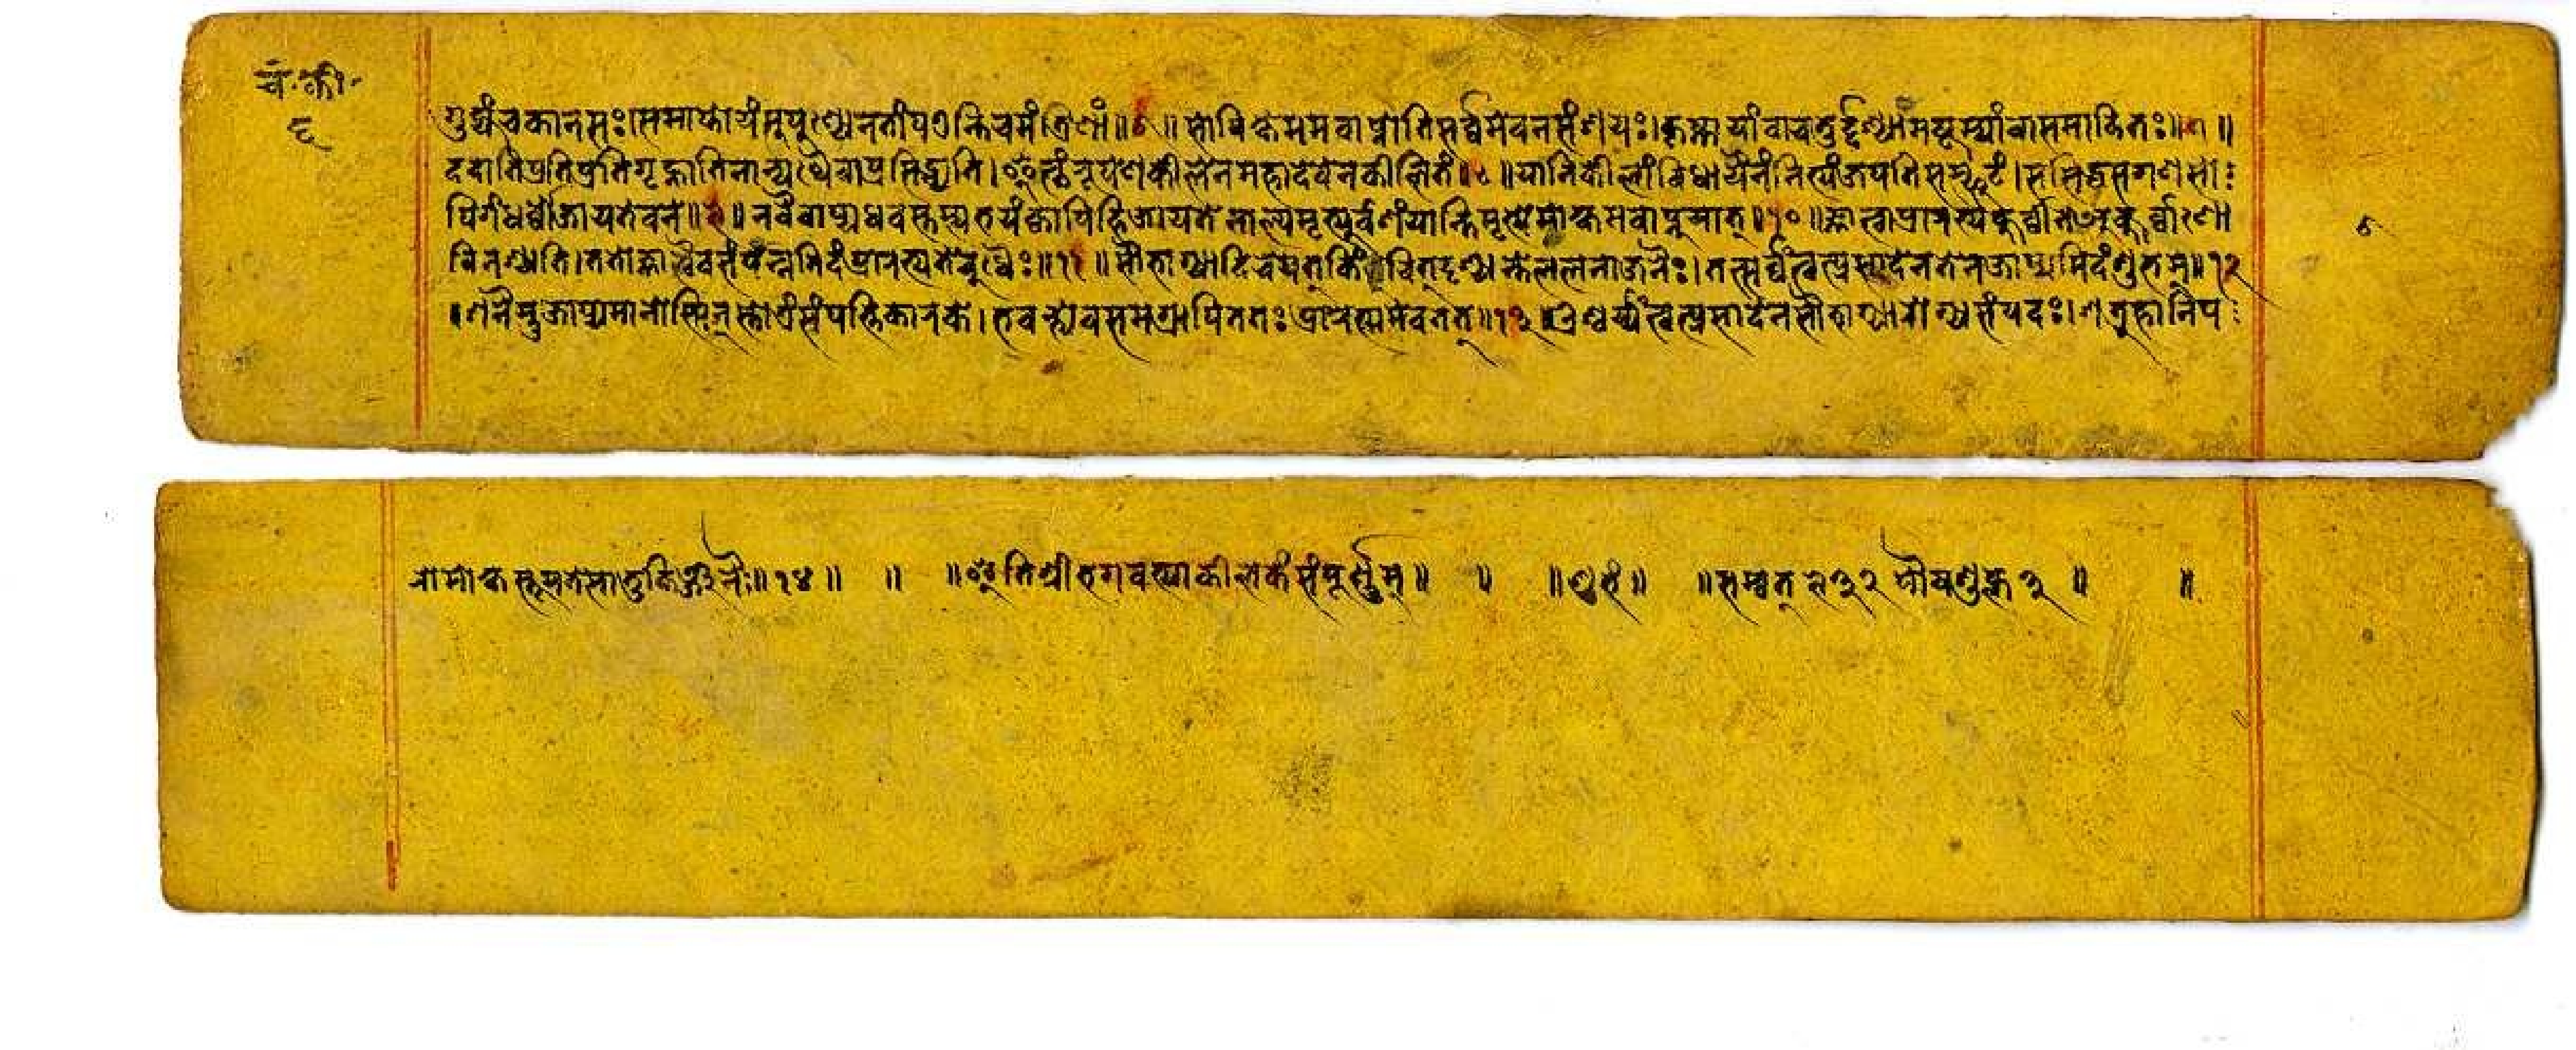 चं·की·
६
गुह्यंचकानसः।समाप्तोयंसुपुण्येनतीपत्रन्तिचमंत्रिणां॥६॥सोविक्षेममवाप्नोतिसर्व्वमेवनसंशयः।कृष्णायांवाचतुर्द्दश्यामष्टम्यांवासमाहितः॥७॥
ददातिप्रतिप्रतिगृह्णातिनान्यथैवाप्रसिद्ध्यति।इत्थंरूपेणकीलेनमहादेवेनकीलितं॥८॥यानिकीलांविधायैनंनित्यंजपतिसम्फुटं।ससिद्धसगणसो
पिगंधर्व्वोजायतेवने॥९॥नवैवाप्यधवस्तस्यभयंक्वापिहिजायतेनाल्पमृत्युर्वशंयान्तिमृत्योमोक्षमवाप्नुयात्॥१०॥ज्ञात्वाप्रारभ्यकुर्व्वीतेअकुर्व्वाणो
विनश्यति।ततोज्ञात्वैवसंपंन्नमिदंप्रारभ्यतेबुधैः॥११॥सौभाग्यादिचयत्किंचित्दृश्यन्तेललनाजनैः।तत्सर्व्वंत्वत्प्रसादेनतेनजाप्यमिदंशुभम्॥१२
॥शनैस्तुजाप्यमानोस्मिन्स्तोत्रंसंपत्तिकारके।भवन्त्येवसमग्रापिततःप्रारभ्यमेवतत्॥१३॥ऐश्वर्य्यंत्वत्प्रसादेनसौभाग्यारोग्यसंपदः।शत्रुहानिप
८
रोमोक्षस्तूयतेसातुकिञ्जनैः॥१४॥ ॥ ॥इतिश्रीभगवत्याकीलकंसंपूर्ण्णम्॥ ॥ ॥शुभं॥ ॥सम्वत् ९३२ पौषशुक्ल ३॥ ॥